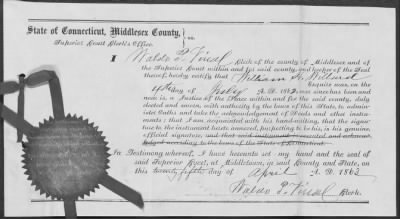 State of Connecticut, Middlesex County, ss.
Superior Court Clerk's Office.
I Waldo P. Vinal Clerk of the county of Middlesex and of
the Superior Court within and for said county, and keeper of the Seal
thereof, hereby certify that William H. Willard
Esquire was, on the
day of July A. D. 1862, was since has been and
now is, a Justice of the Peace within and for the said county, duly
elected and sworn, with authority by the laws of the State, to admin-
ister Oaths and take the acknowledgment of Deeds and other instru-
ments: that I am acquainted with his hand-writing, that the signa-
ture to the instrument hereto annexed, purporting to be his, is his genuine
official signature, and that said instrument is executed and acknow-
ledged according to the laws of the State of Connecticut.
In Testimony whereof, I have hereunto set my hand and the seal of
said Superior Court, at Middletown, in said County and State, on
this twenty fifth day of April A. D. 1863
Waldo P. Vinal Clerk.